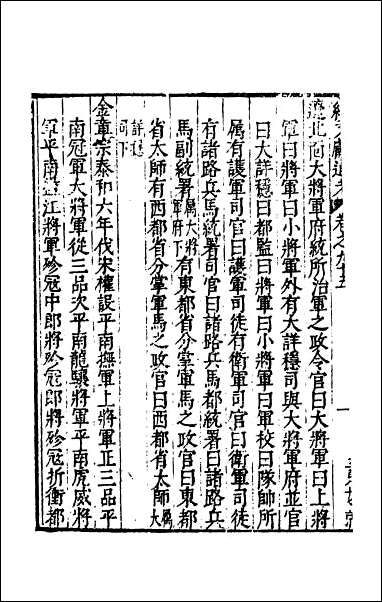 續文獻通考 卷之九十五 一
遼北面大將軍府統所治軍之政令官曰大將軍曰上將
軍曰將軍曰小將軍外有大詳穩司與大將軍府並官
曰大詳穩曰都監曰將軍曰小將軍曰軍校曰隊師所
属有護軍司官曰護軍司徒有衛軍司官曰衛軍司徒
有諸路兵馬統署司官曰諸路兵馬都統署曰諸路兵
馬副統署属大將軍府下有東都省分掌軍馬之政官曰東都
省太師有西都省分掌軍馬之政官曰西都省太師属大
詳穩司下
金章宗泰和六年伐宋權設平南撫軍上將軍正三品平
南冠軍大將軍從三品次平南龍驤將軍平南虎威將
軍平南盪江將軍殄寇中郎將殄寇郎將殄寇折衝都